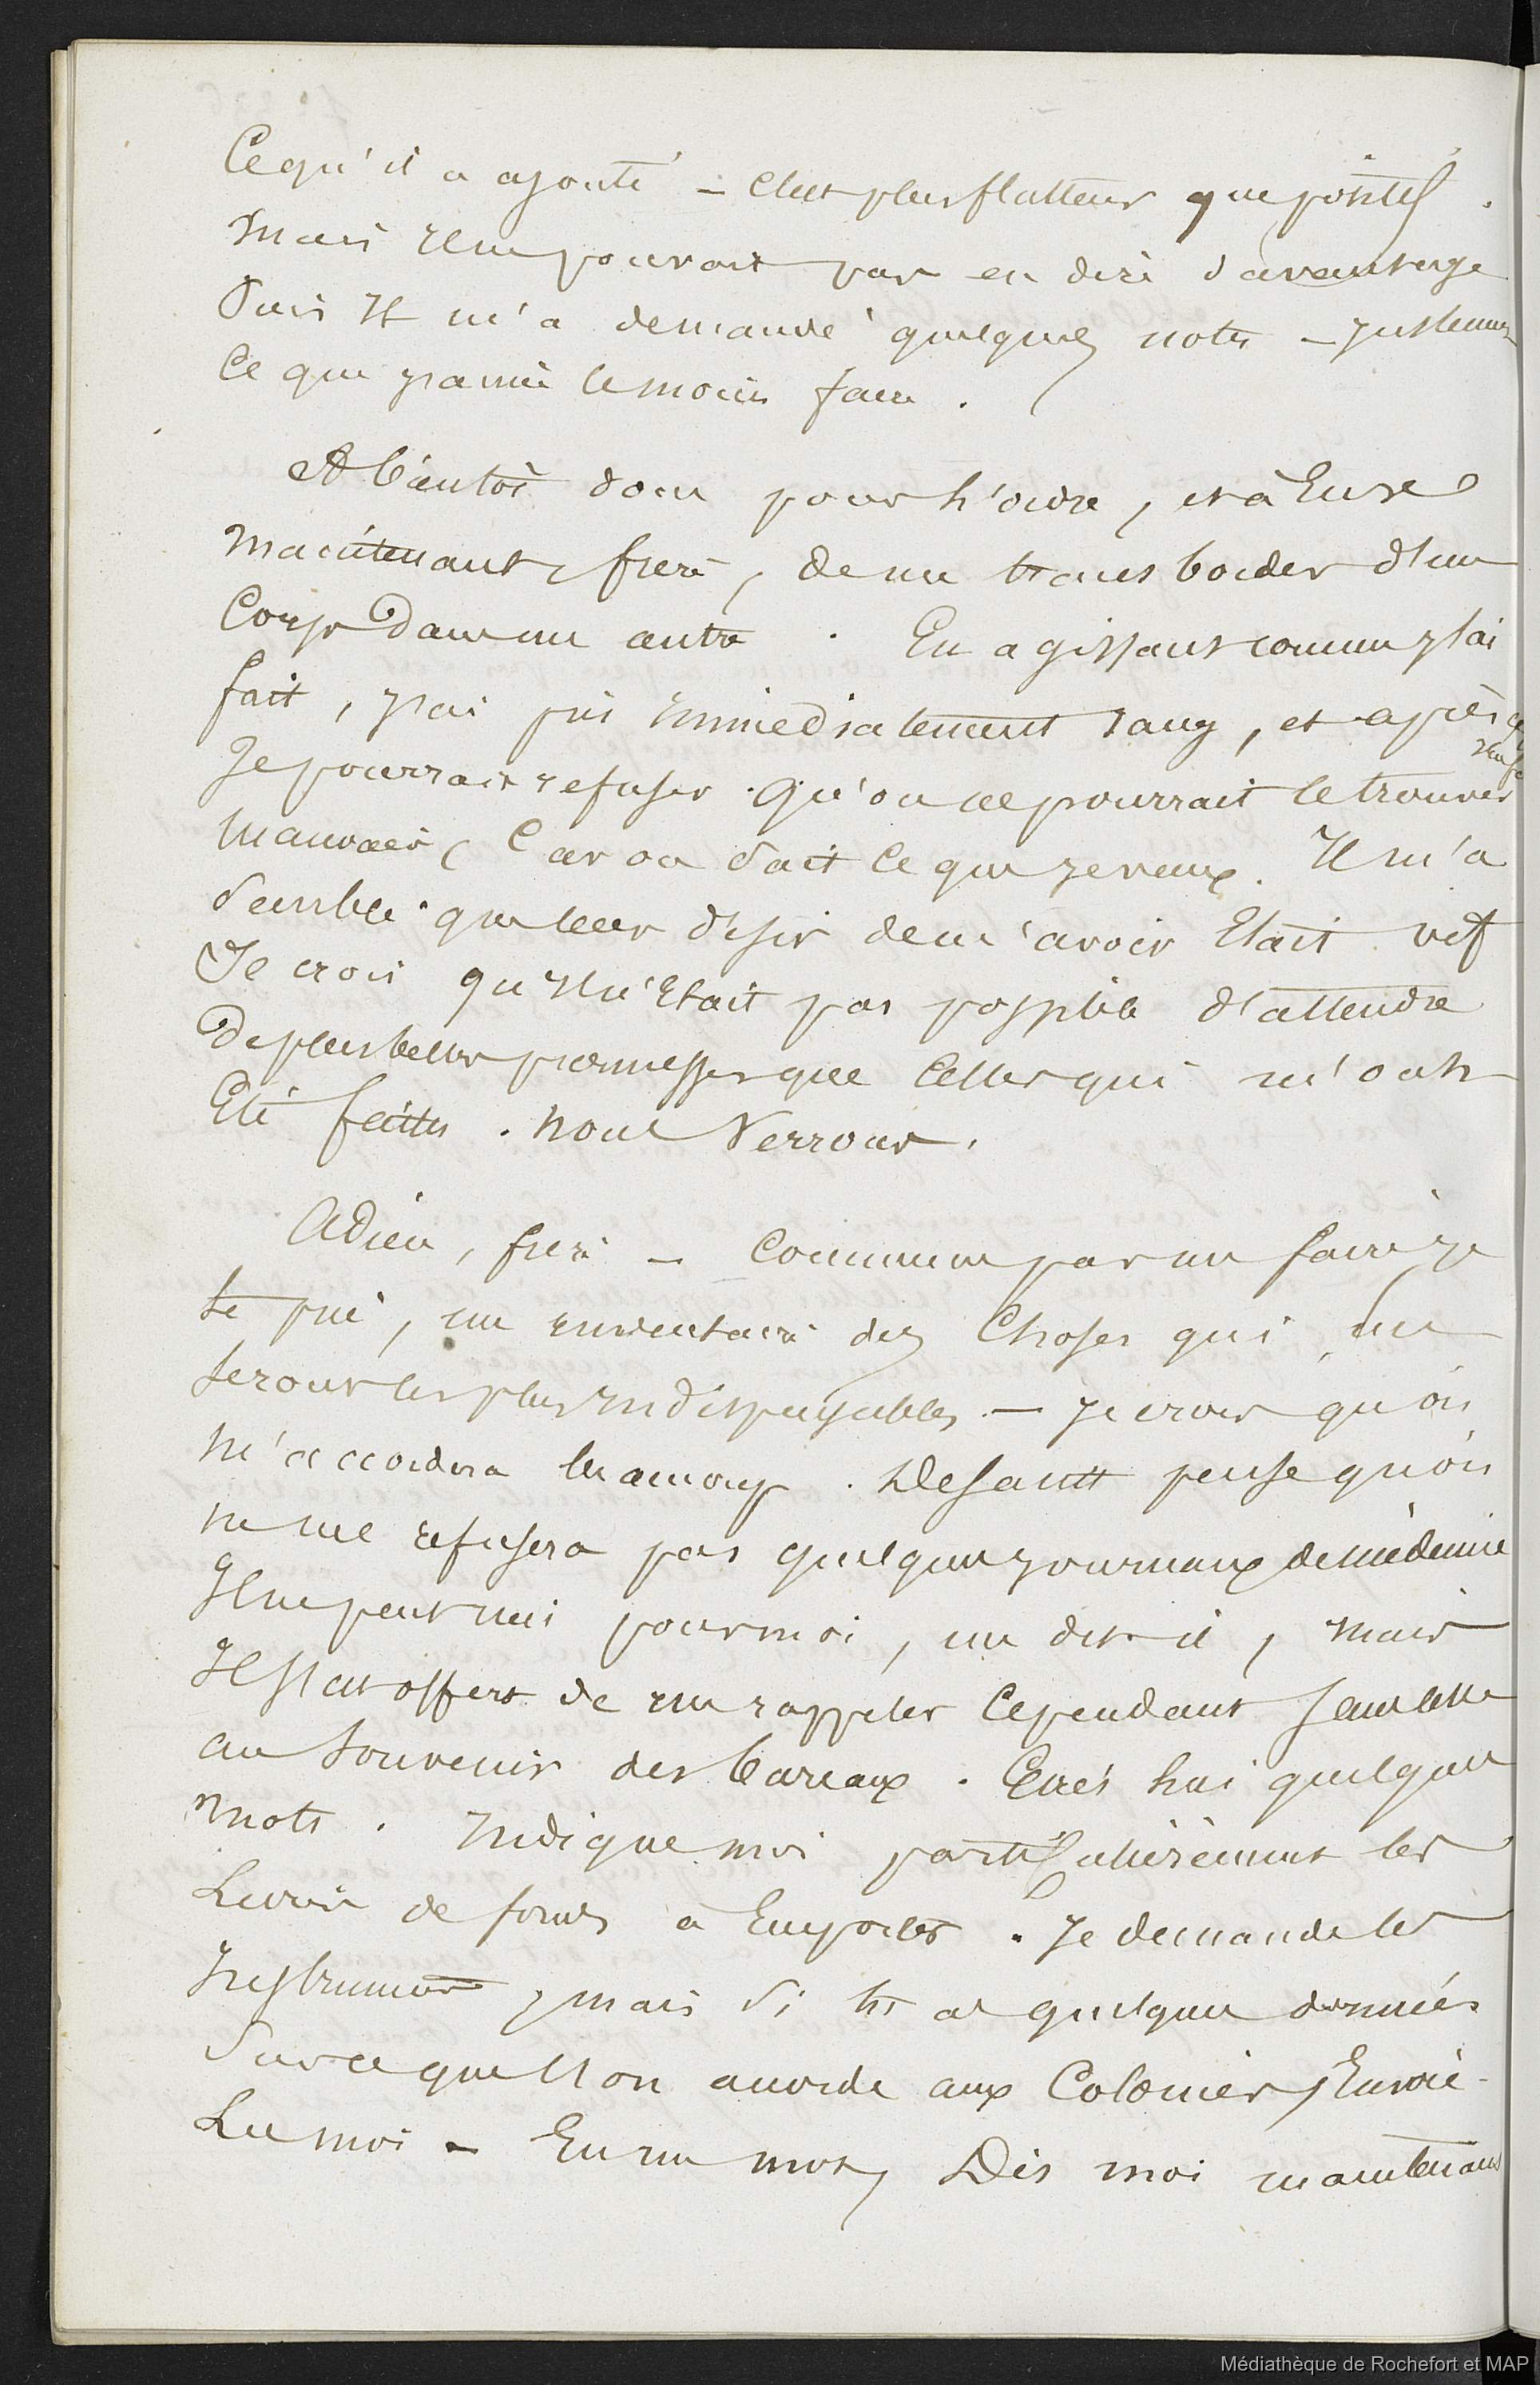 Ce qu'il a ajouté – c'est plus flatteur que positif.
Mais il ne pouvait pas en dire davantage
Puis il m'a demandé quelques notes – justement
Ce que j'aime le moins faire.
A bientôt donc pour t'écrire, et à Eux
maintenant, frère, de me transborder d'un
Corps Dans un autre. En agissant comme j'ai
fait, j'ai pris immédiatement rang, et après
Je pourrais refuser qu'on ne pourrait le trouver
mauvais, Car on sait ce que je veux. Il m'a
semblé que leur désir de m'avoir Etait vif
Je crois qu'il n'était pas possible d'attendre
De plus belles promesses que Celles qui m'ont
Eté faites. Nous Verrons.
Adieu, frère – Commence par me faire je
te prie, un inventaire des Choses qui me
seront les plus indispensables – Je crois qu'on
m'accordera beaucoup. Desault pense qu'on
ne me refusera pas quelques journaux de médecine
Il ne peut rien pour moi, me dit-il, mais
Il s'est offert de me rappeler Cependant
au souvenir des bureaux. Ecris lui quelques
mots. Indique moi particulièrement les
Livres de fonds à Emporter. Je demande les
Instruments, mais si tu as quelques données
Sur ce que l'on accorde aux Colonies, Envoie-
Le moi – En un mot, Dis moi maintenant
Médiathèque de Rochefort et MAP